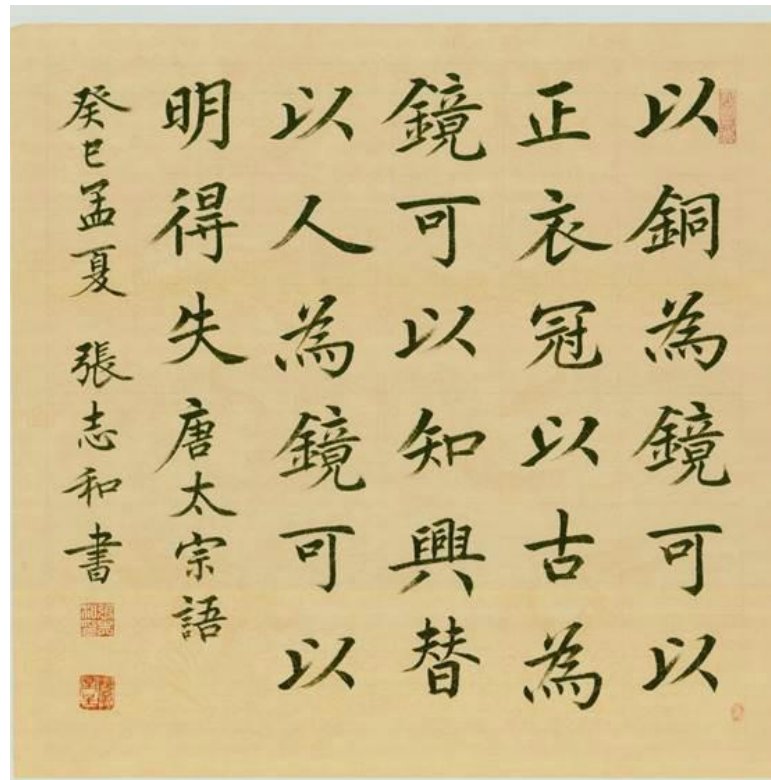 以銅為鏡可以
正衣冠以古為
鏡可以知興替
以人為鏡可以
明得失唐太宗語
癸巳孟夏 張志和書